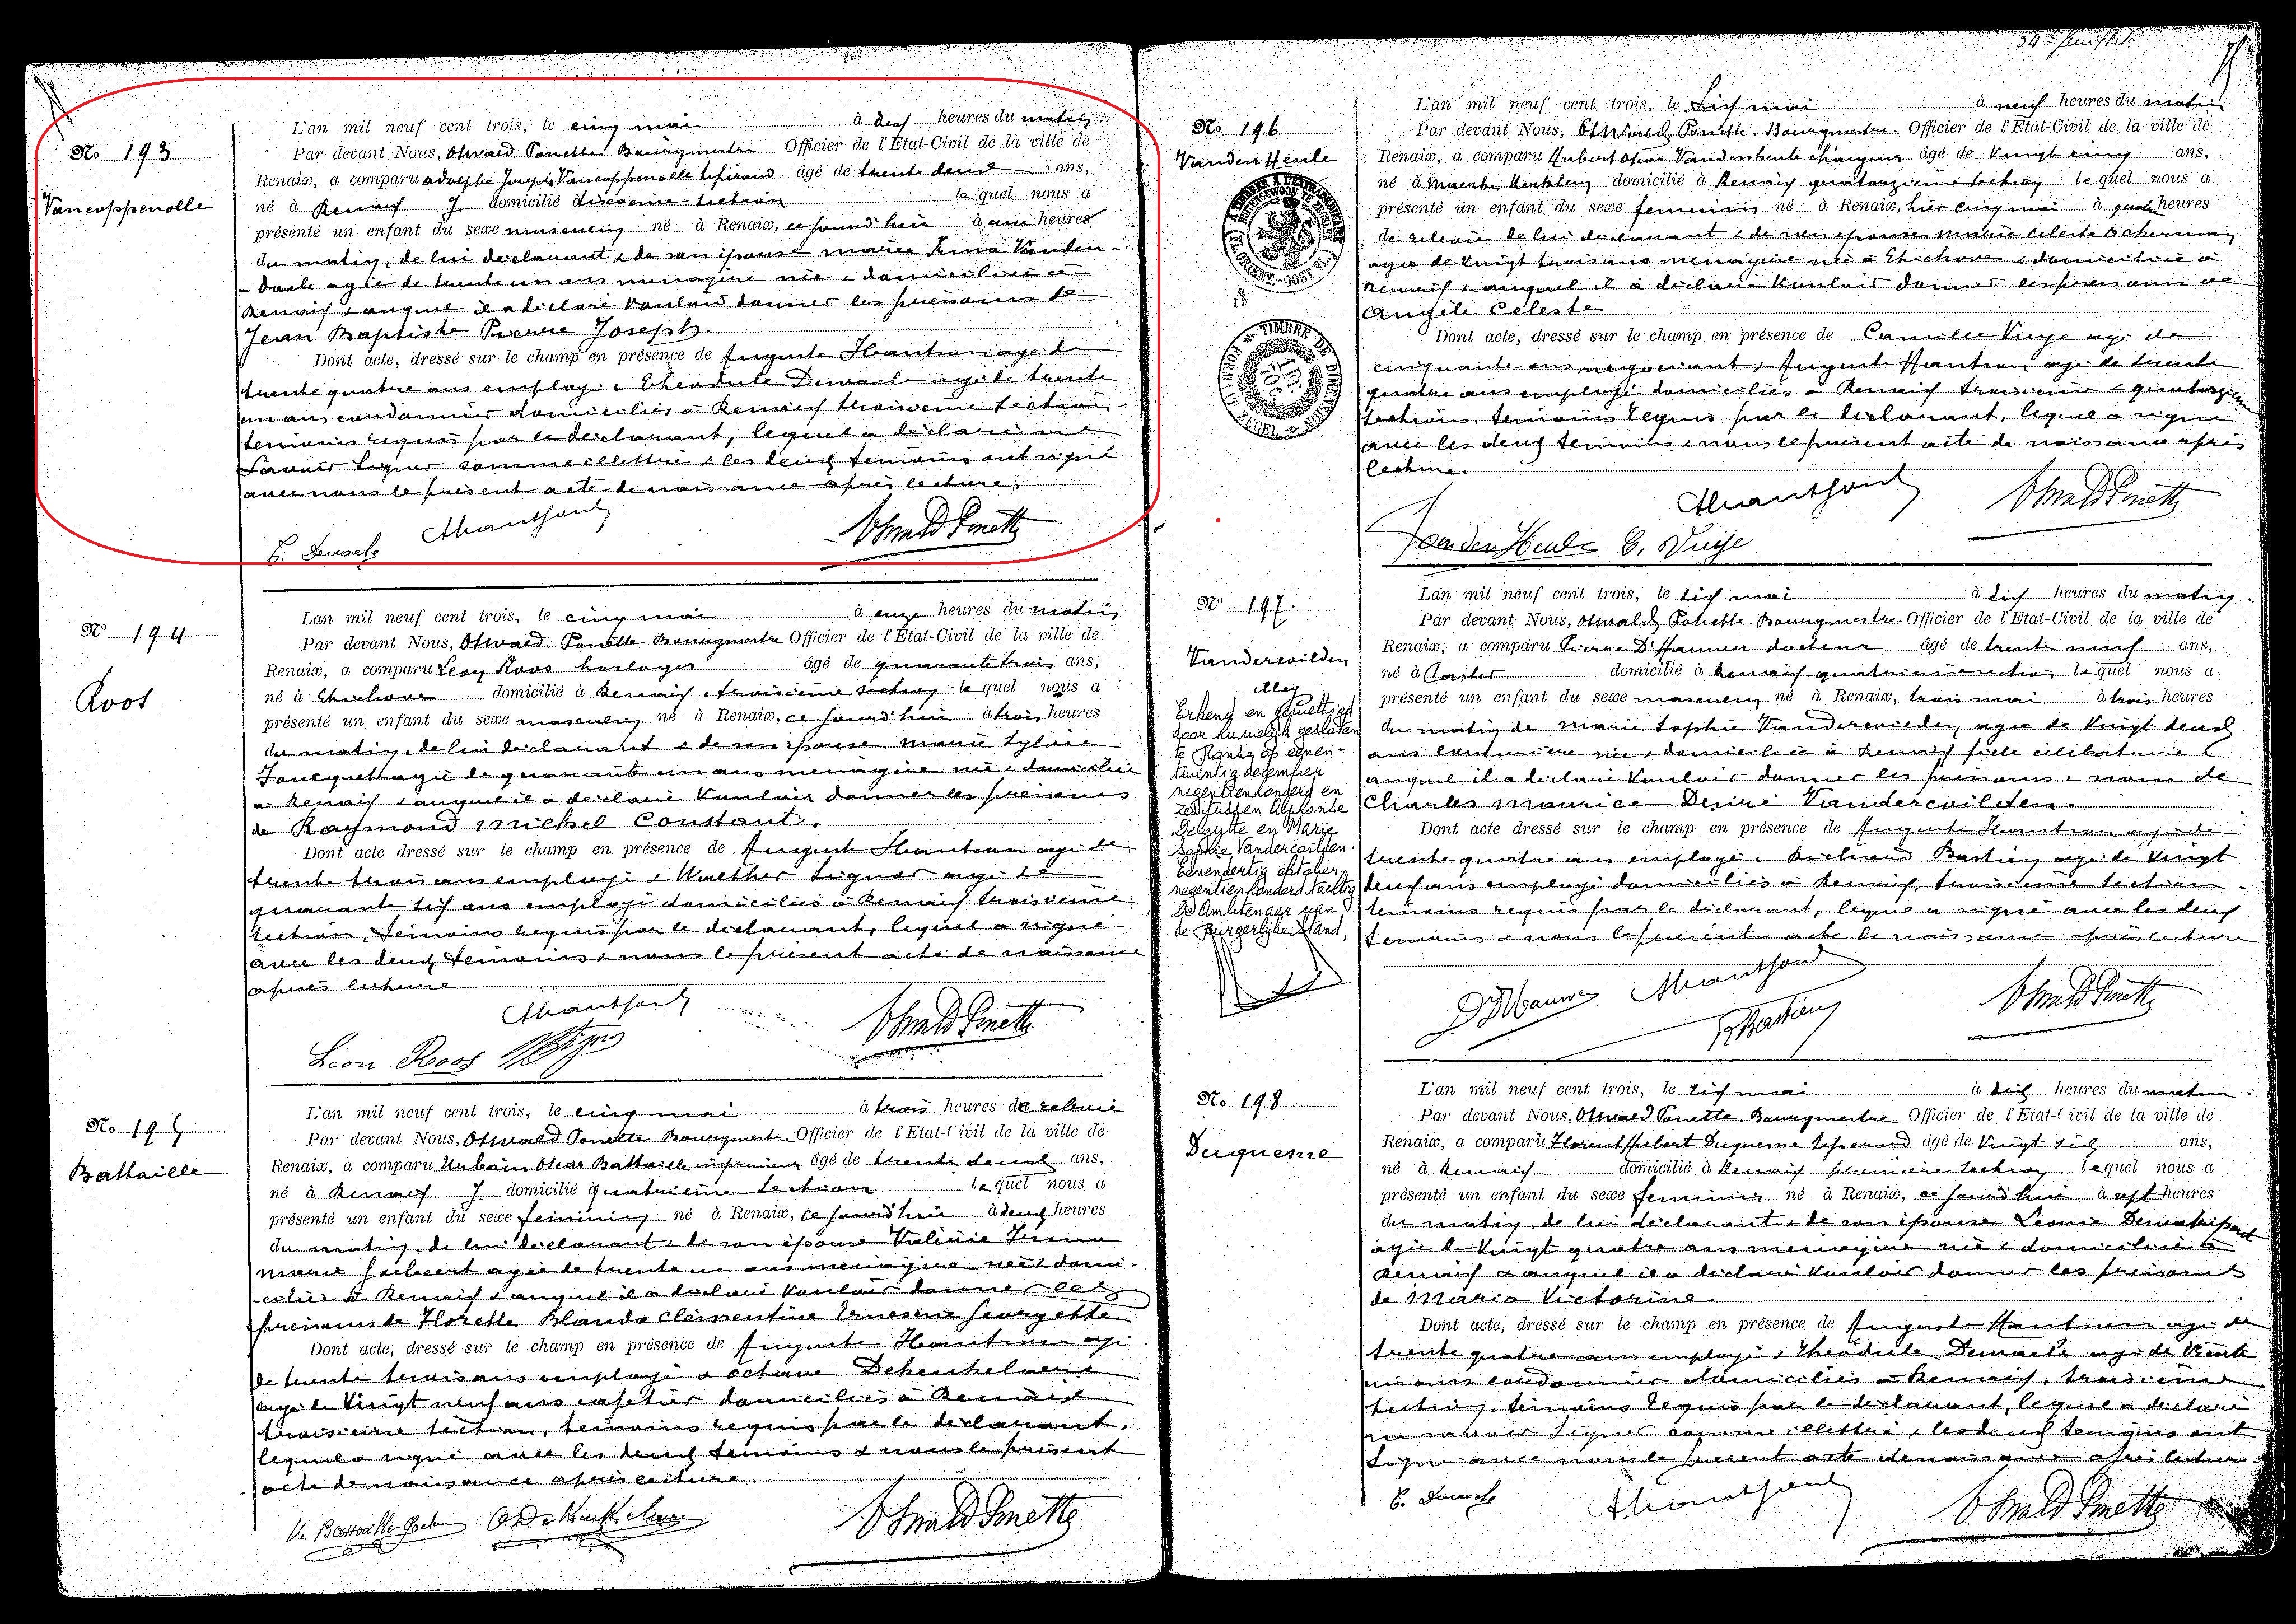 No 193
Vancoppenolle
L'an mil neuf cent trois, le cinq mai à dix heures du matin
Par devant Nous, Oswald Ponette Bourgmestre Officier de l'Etat-Civil de la ville de
Renaix, a comparu Adolphe Joseph Vancoppenolle tisserand âgé de trente deux ans,
né à Renaix & domicilié section lequel nous a
présenté un enfant du sexe masculin né à Renaix, ce jourd'hui à une heures
du matin, de lui déclarant & de son épouse Marie Irma Vanden-
- daele agée de trente un ans menagère née & domiciliée à
Renaix & auquel il a déclaré vouloir donner les prénoms de
Jean Baptiste Pierre Joseph.
Dont acte, dressé sur le champ en présence de Auguste Hantson agé de
trente quatre ans employé & Théodule Dewaele agé de trente
un ans cordonnier domiciliés à Renaix troisième section
témoins requis par le déclarant, lequel a déclaré ne
savoir signer comme illettré & les deux témoins ont signé
avec nous le présent acte de naissance après lecture.
T. Dewaele AHantson Oswald Ponette
No 194
Roos
L'an mil neuf cent trois, le cinq mai à onze heures du matin
Par devant Nous, Oswald Ponette Bourgmestre Officier de l'Etat-Civil de la ville de
Renaix, a comparu Léon Roos horloger âgé de quarante trois ans,
né à Etichove domicilié à Renaix, troisième section lequel nous a
présenté un enfant du sexe masculin né à Renaix, ce jourd'hui à trois heures
du matin, de lui déclarant & de son épouse Marie Sylvie
Foucquet agée de quarante un ans menagère née & domiciliée
à Renaix & auquel il a déclaré vouloir donner les prénoms
de Raymond Michel Constant.
Dont acte dressé sur le champ en présence de Auguste Hantson agé de
trente trois ans employé & Walther Signor agé de
quarante six ans employé domiciliés à Renaix troisième
section, témoins requis par le déclarant, lequel a signé
avec les deux témoins & nous le présent acte de naissance
après lecture
AHantson Oswald Ponette
Léon Roos
No 195
Battaille
L'an mil neuf cent trois, le cinq mai à trois heures de relevée
Par devant Nous, Oswald Ponette Bourgmestre Officier de l'Etat-Civil de la ville de
Renaix, a comparu Urbain Oscar Battaille imprimeur âgé de trente deux ans,
né à Renaix & domicilié quatrième section lequel nous a
présenté un enfant du sexe féminin né à Renaix, ce jourd'hui à deux heures
du matin, de lui déclarant & de son épouse Valérie Irma
Marie agée de trente un ans menagère née & domi-
ciliée à Renaix & auquel il a déclaré vouloir donner les
prénoms de Florette Blanda Clémentine Ernesine Georgette
Dont acte, dressé sur le champ en présence de Auguste Hantson agé
de trente trois ans employé & Octave Dekeukelaere
agé de vingt neuf ans cafetier domiciliés à Renaix
troisième section, témoins requis par le déclarant,
lequel a signé avec les deux témoins & nous le présent
acte de naissance après lecture.
Oswald Ponette
34e feuillet
No 196
Vanden Heule
L'an mil neuf cent trois, le six mai à neuf heures du matin
Par devant Nous, Oswald Ponette, Bourgmestre. Officier de l'Etat-Civil de la ville de
Renaix, a comparu Hubert Oscar Vandenheule âgé de vingt cinq ans,
né à Maercke Kerkhem domicilié à Renaix quatorzième section lequel nous a
présenté un enfant du sexe féminin né à Renaix, hier cinq mai à quatre heures
de relevée de lui déclarant & de son épouse Marie Céleste
agée de vingt trois ans menagère née à Etichove & domiciliée à
Renaix & auquel il a déclaré vouloir donner les prénoms de
Angèle Céleste
Dont acte, dressé sur le champ en présence de Camille Vuye agé de
cinquante ans negociant & August Hantson agé de trente
quatre ans employé domiciliés à Renaix troisième & quatorzième
sections, témoins requis par le déclarant, lequel a signé
avec les deux témoins & nous le présent acte de naissance après
lecture.
AHantson Oswald Ponette
Vanden Heule C. Vuye
À TIMBRER À L'EXTRAORDINAIRE
BUITENGEWOON TE ZEGELEN
(FL. ORIENT.-OOST VL.)
TIMBRE DE DIMENSION
FORMAAT ZEGEL
1 FR. 70 C.
No 197.
Vanderevilden
Erkend en gewettigd
door huwelijk gesloten
te Ronse op eenen-
twintig december
negentienhonderd en
zes tusschen Alphonse
Deleutte en Marie
Sophie Vandercoilden.
Eenendertig october
negentienhonderd twintig
De Ambtenaar van
de Burgerlijke Stand,
L'an mil neuf cent trois, le six mai à dix heures du matin.
Par devant Nous, Oswald Ponette Bourgmestre Officier de l'Etat-Civil de la ville de
Renaix, a comparu Pierre D'Hauwer docteur âgé de trente neuf ans,
né à Caster domicilié à Renaix quatrième section lequel nous a
présenté un enfant du sexe masculin né à Renaix, trois mai à trois heures
du matin de Marie Sophie Vanderevilden agée de vingt deux
ans couturière née & domiciliée à Renaix fille célibataire &
auquel il a déclaré vouloir donner les prénoms & nom de
Charles Maurice Desiré Vanderevilden.
Dont acte dressé sur le champ en présence de Auguste Hantson agé de
trente quatre ans employé & Richard Bastien agé de vingt
deux ans employé domiciliés à Renaix, troisième section
témoins requis par le déclarant, lequel a signé avec les deux
témoins & nous le présent acte de naissance après lecture
AHantson Oswald Ponette
RBastien
No 198
Duquesne
L'an mil neuf cent trois, le six mai à dix heures du matin.
Par devant Nous, Oswald Ponette Bourgmestre Officier de l'Etat-Civil de la ville de
Renaix, a comparu Florent Hubert Duquesne tisserand âgé de vingt six ans,
né à Renaix domicilié à Renaix première section lequel nous a
présenté un enfant du sexe féminin né à Renaix, ce jourd'hui à sept heures
du matin de lui déclarant & de son épouse Léonie
agée de vingt quatre ans menagère née & domiciliée à
Renaix & auquel il a déclaré vouloir donner les prénoms
de Maria Victorine.
Dont acte, dressé sur le champ en présence de Auguste Hantson agé de
trente quatre ans employé & Théodule Dewaele agé de trente
un ans cordonnier domiciliés à Renaix, troisième
section, témoins requis par le déclarant, lequel a déclaré
ne savoir signer comme illettré & les deux témoins ont
signé avec nous le présent acte de naissance après lecture.
T. Dewaele AHantson Oswald Ponette